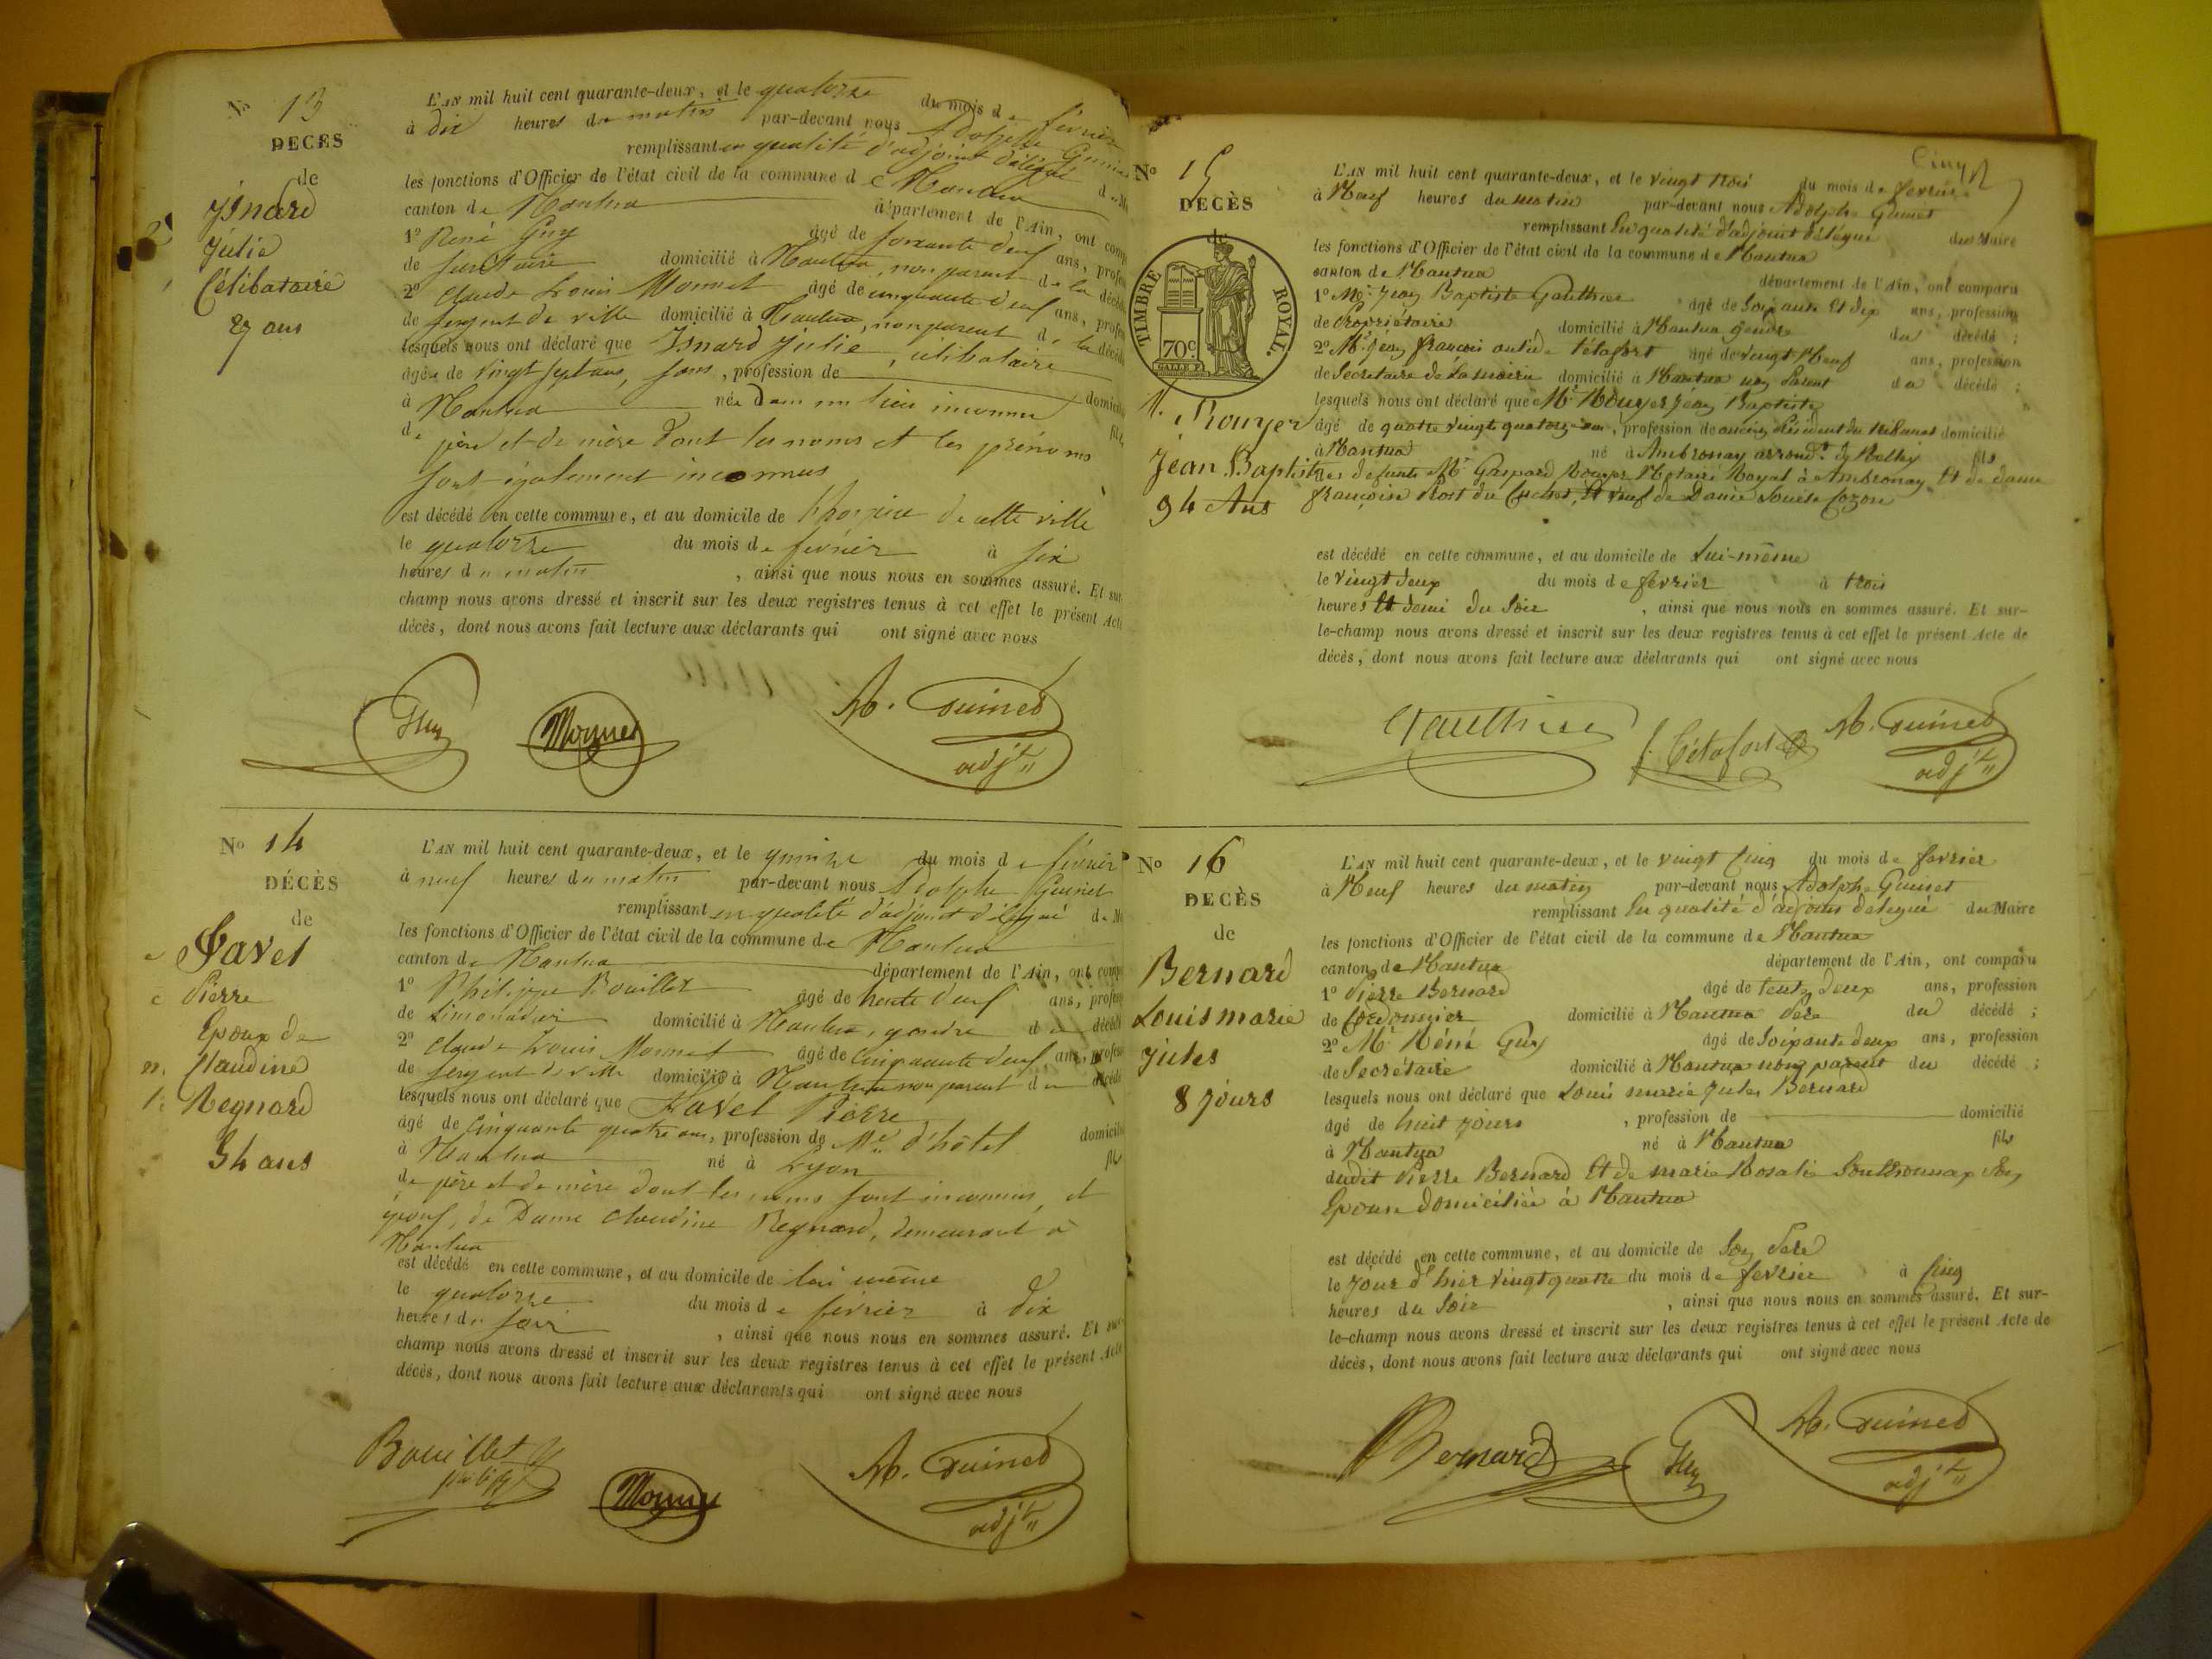 No 13
DECES
de
Isnard
Julie
Célibataire
27 ans
L'AN mil huit cent quarante-deux, et le quatorze du mois de février
à dix heures du matin par-devant nous Adolphe
remplissant en qualité d'adjoint délégué
les fonctions d'Officier de l'état civil de la commune de Nantua
canton de Nantua département de l'Ain, ont
1º René Guy âgé de soixante deux ans,
de domicilié à Nantua, non parent de la
2º Claude Louis Monnet âgé de cinquante deux ans,
de sergent de ville domicilié à Nantua, non parent de la
lesquels nous ont déclaré que Isnard Julie, célibataire
âgée de vingt sept ans, sans, profession de
à Nantua née dans un lieu inconnu
de père et de mère dont les noms et les prénoms
sont également inconnus
est décédé en cette commune, et au domicile de l'hospice de cette ville
le quatorze du mois de février à six
heures du matin, ainsi que nous nous en sommes assuré. Et sur
champ nous avons dressé et inscrit sur les deux registres tenus à cet effet le présent Acte
décès, dont nous avons fait lecture aux déclarants qui ont signé avec nous
Guy Monnet A. Guinet
adjt
No 14
DÉCÈS
de
Favet
Pierre
Epoux de
Claudine
Regnard
54 ans
L'AN mil huit cent quarante-deux, et le quinze du mois de février
à neuf heures du matin par-devant nous Adolphe Guinet
remplissant en qualité d'adjoint délégué
les fonctions d'Officier de l'état civil de la commune de Nantua
canton de Nantua département de l'Ain, ont
1º Philippe Bouillet âgé de trente deux ans,
de Limonadier domicilié à Nantua, gendre du
2º Claude Louis Monnet âgé de Cinquante deux ans,
de sergent de ville domicilié à Nantua non parent du
lesquels nous ont déclaré que Favet Pierre
âgé de Cinquante quatre ans, profession de Me d'hôtel
à Nantua né à Lyon
de père et de mère dont les noms sont inconnus, et
époux, de Dame Claudine Regnard, demeurant à
Nantua
est décédé en cette commune, et au domicile de lui même
le quatorze du mois de février à dix
heures du soir, ainsi que nous nous en sommes assuré. Et
champ nous avons dressé et inscrit sur les deux registres tenus à cet effet le présent Acte
décès, dont nous avons fait lecture aux déclarants qui ont signé avec nous
Bouillet Monnet A. Guinet
adjt
Cinq
No 15
DECÈS
de
TIMBRE ROYAL.
70c.
M. Rouyer
Jean Baptiste
94 Ans
L'AN mil huit cent quarante-deux, et le vingt trois du mois de fevrier
à Neuf heures du matin par-devant nous Adolphe Guinet
remplissant En qualité d'adjoint délégué du Maire
les fonctions d'Officier de l'état civil de la commune de Nantua
canton de Nantua département de l'Ain, ont comparu
1º Mr. Jean Baptiste Gauthier âgé de Soixante Et dix ans, profession
de Propriétaire domicilié à Nantua gendre du décédé ;
2º Mr. Jean françois Tétafort âgé de vingt Neuf ans, profession
de Secretaire de la mairie domicilié à Nantua non Parent du décédé ;
lesquels nous ont déclaré que Mr. Rouyer Jean Baptiste
âgé de quatre vingt quatorze ans, profession de ancien Président du tribunal domicilié
à Nantua né à Ambronay arrondt. de Belley fils
des defunts Mr. Gaspard Rouyer Notaire Royal à Ambronay Et de dame
françoise Rost du Cuchet, Et veuf de Dame Cozon
est décédé en cette commune, et au domicile de Lui-même
le vingt deux du mois de fevrier à trois
heures Et demi du Soir, ainsi que nous nous en sommes assuré. Et sur-
le-champ nous avons dressé et inscrit sur les deux registres tenus à cet effet le présent Acte de
décès, dont nous avons fait lecture aux déclarants qui ont signé avec nous
Gauthier Tétafort A. Guinet
adjt
No 16
DECÈS
de
Bernard
Louis marie
Jules
8 jours
L'AN mil huit cent quarante-deux, et le vingt Cinq du mois de fevrier
à Neuf heures du matin par-devant nous Adolphe Guinet
remplissant En qualité d'adjoint délégué du Maire
les fonctions d'Officier de l'état civil de la commune de Nantua
canton de Nantua département de l'Ain, ont comparu
1º Pierre Bernard âgé de trente deux ans, profession
de Cordonnier domicilié à Nantua Pere du décédé ;
2º Mr. Réné Guy âgé de Soixante deux ans, profession
de Secrétaire domicilié à Nantua non parent du décédé ;
lesquels nous ont déclaré que Louis marie Jules Bernard
âgé de huit jours, profession de domicilié
à Nantua né à Nantua fils
dudit Pierre Bernard Et de marie Rosalie Sonthonnax Son
Epouse domiciliée à Nantua
est décédé en cette commune, et au domicile de Son Pere
le Jour d'hier vingt quatre du mois de fevrier à Cinq
heures du Soir, ainsi que nous nous en sommes assuré. Et sur-
le-champ nous avons dressé et inscrit sur les deux registres tenus à cet effet le présent Acte de
décès, dont nous avons fait lecture aux déclarants qui ont signé avec nous
Bernard Guy A. Guinet
adjt